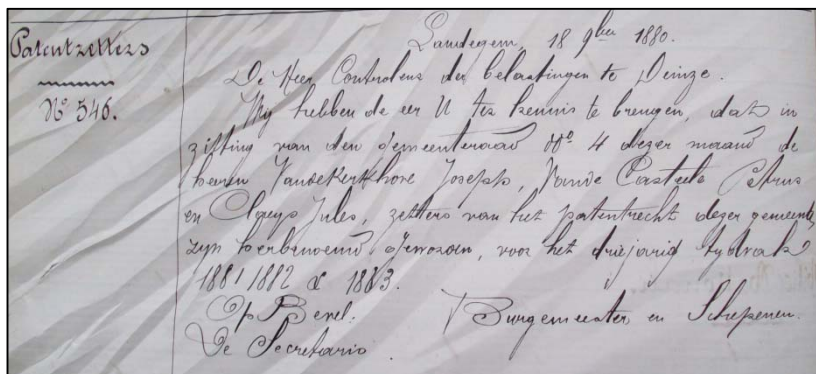 Patentzetters
N° 546.
Landegem, 18 9ber 1880.
De Heer Controleur der belastingen te Deinze.
Wij hebben de eer U ter kennis te brengen, dat in
zitting van den gemeenteraad dd° 4 dezer maand de
heeren Vandekerkhove Joseph, Vande Casteele Petrus
en Claeys Jules, zetters van het patentrecht dezer gemeente
zijn herbenoemd geworden, voor het driejarig tydvak
1881 1882 & 1883.
Op Bevel.
Burgemeester en Schepenen.
De Secretaris.